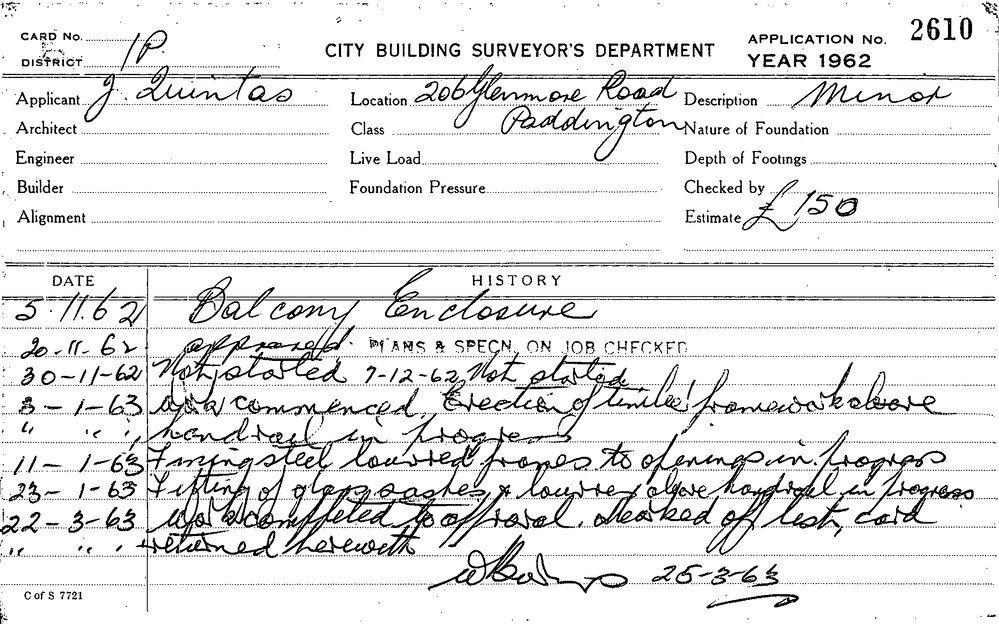 CARD No.
DISTRICT 1P
CITY BUILDING SURVEYOR'S DEPARTMENT
APPLICATION No. 2610
YEAR 1962
Applicant J. Quintas
Location 206 Glenmore Road
Paddington
Description Minor
Architect
Class
Nature of Foundation
Engineer
Live Load
Depth of Footings
Builder
Foundation Pressure
Checked by
Alignment
Estimate £150
DATE HISTORY
5.11.62 Balcony Enclosure
20-11-62 approved. PLANS & SPECN. ON JOB CHECKED
30-11-62 Not started 7-12-62 Not started
8-1-63 work commenced, Erection of timber framework above
" " " handrail in progress
11-1-63 Fixing steel louvred frames to openings in progress
23-1-63 Fitting of glass sashes & louvres above handrail in progress
22-3-63 Work completed to approval. Marked off list, card
" " " returned herewith
25-3-63
C of S 7721